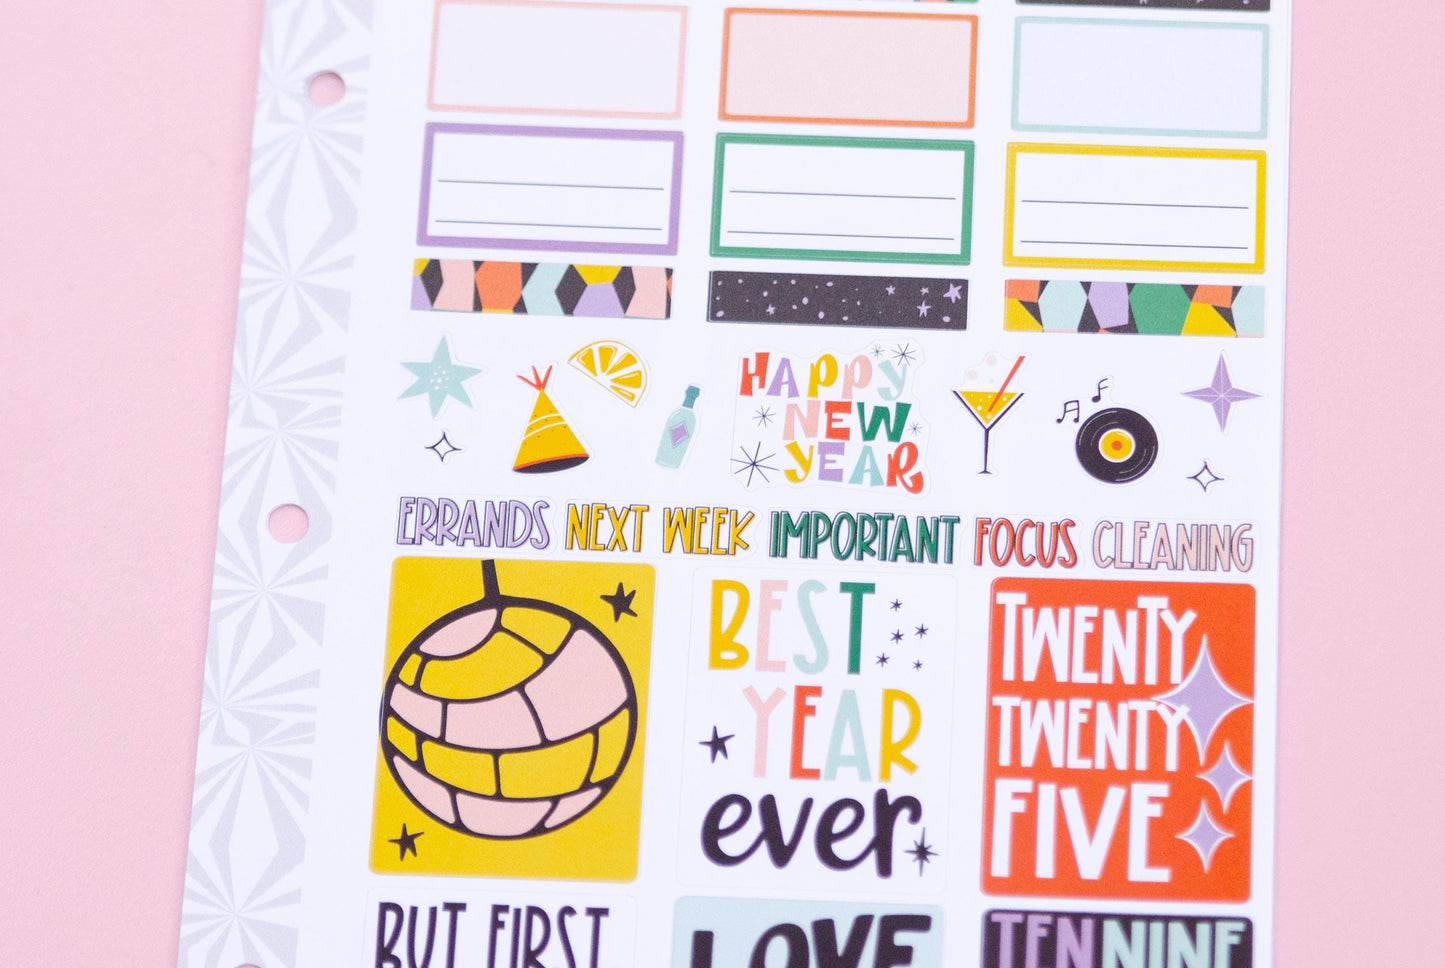 HAPPY
NEW
YEAR
ERRANDS NEXT WEEK IMPORTANT FOCUS CLEANING
BEST
YEAR
ever
TWENTY
TWENTY
FIVE
BUT FIRST
LOVE
TEN NINE